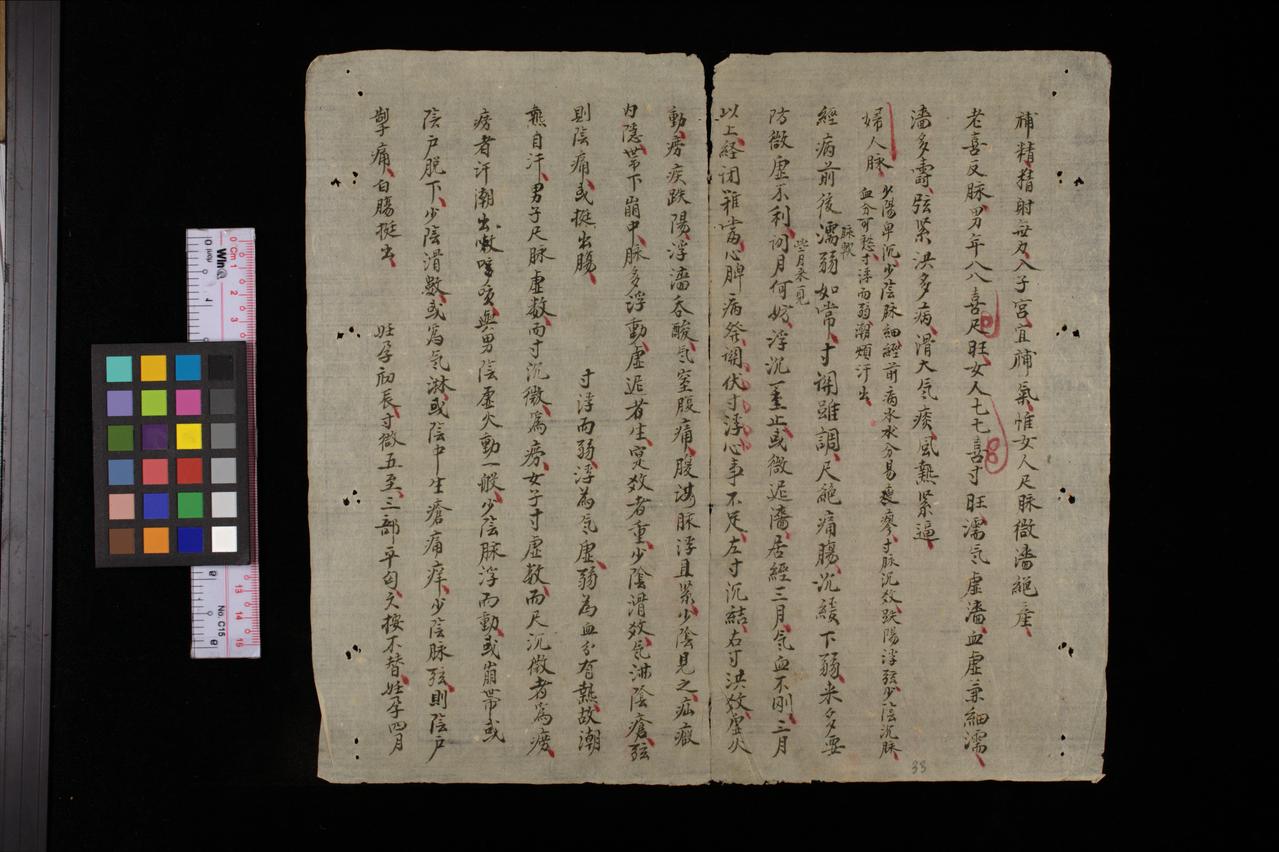 補精精射無力入子宮宜補氣惟女人尺脉微濇絕產
老喜反脉男年八八喜尺旺女人七七喜寸旺濡氣虛濇血虛兼細濡
濇多壽弦紧洪多病滑大氣痰風熱紧逼
婦人脉
少陽卑沉少陰脉細經前病水水分易瘳寸脉沉效趺陽浮弦少陰沉脉
血分可愁寸浮而弱潮煩汗出
經病前後濡弱如常寸関雖調尺絕痛腸沉緩下弱来多要
脉軟
防微虛不利詞月何妨浮沉一止或微遲濇居經三月气血不刚三月
以上経闭难當心脾病發関伏寸浮心事不足左寸沉結右寸洪效虛火
動痨疾趺陽浮濇吞酸气室腹痛腹满脉浮且紧少陰見之疝瘕
內隐带下崩中脉多浮動虛遲者生寔效者重少陰滑效气淋陰瘡弦
則陰痛或挺出腸
寸浮而弱浮為气虛弱為血分有熱故潮
熱自汗男子尺脉虛数而寸沉微為痨女子寸虛数而尺沉微者為痨
痨者汗潮出嗽咳與男陰虛火動一般少陰脉浮而動或崩带或
陰户脱下少陰滑數或為气淋或陰中生瘡痛痒少陰脉弦則陰户
掣痛白腸挺出
妊孕初辰寸微五至三部平匀久按不替妊孕四月
33